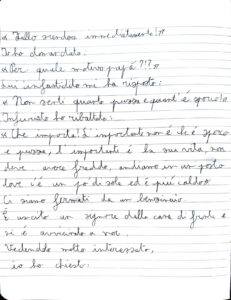 « Fallo scendere immediatamente! »
Io ho domandato:
« Per quale motivo papà??? »
Lui infastidito mi ha risposto:
« Non senti quanto puzza e quant'è sporco! »
Infuriato ho ribattuto:
« Che importa! L'importante non è che è sporco
e puzza, l'importante è la sua vita, non
deve avere freddo, andiamo in un posto
dove c'è un po di sole ed è più caldo»
Ci siamo fermati da un benzinaio.
È uscito un signore dalla casa di fronte e
si è avvicinato a noi.
Vedendolo molto interessato,
io ho chiesto: